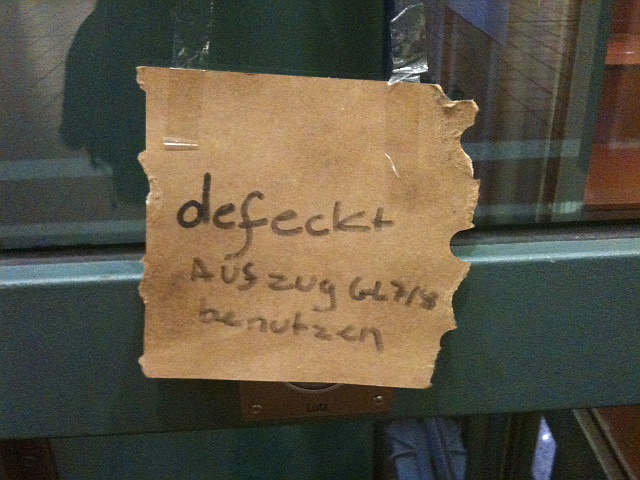 defeckt
Auszug GL7/8
benutzen
Lotz